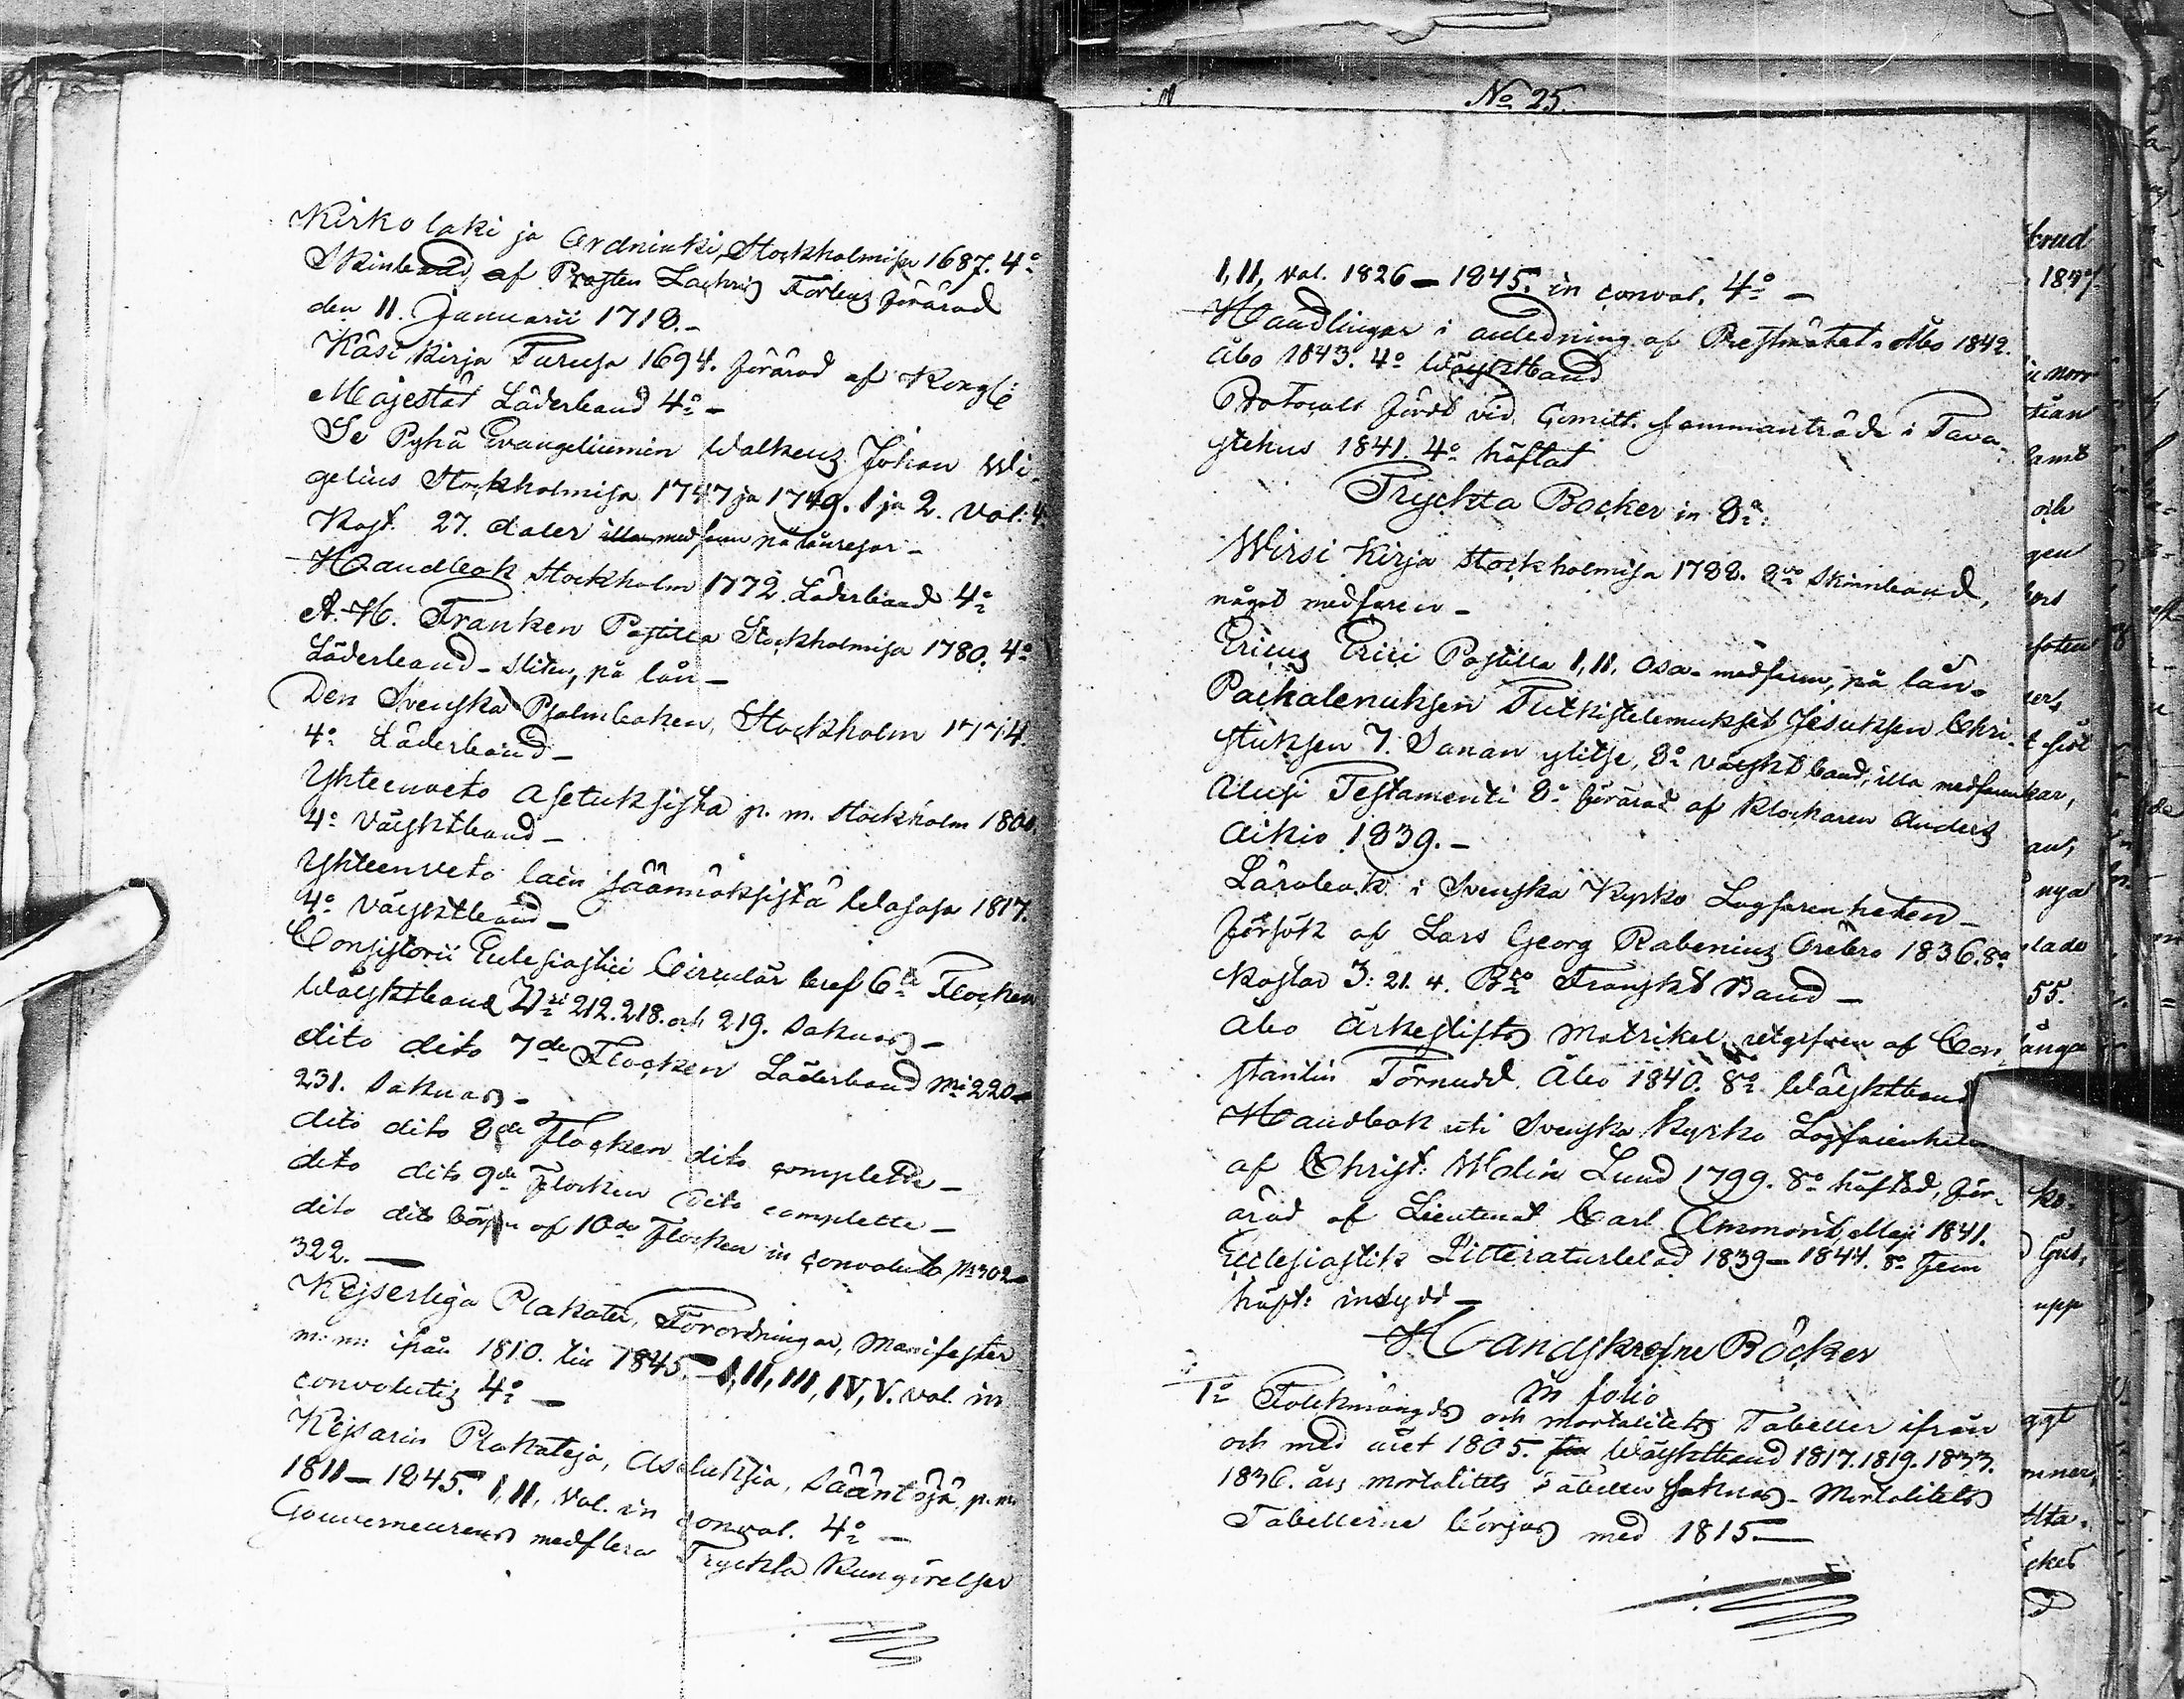 Kirko laki ja Ordninki, Stockholmisa 1687. 4:o
Skinband, af Prosten Zachris Forteus förärad
den 11. Januarii 1718.-
Käsi Kirja Turusa 1694. förärad af Kongl:
Majestät Läderband 4:o -
Se Pyhä Evangeliumin Walkeus Johan Wi-
gelius Stockholmisa 1747 ja 1749. 1 ja 2. Vol: 4.
Kost. 27. daler illa medfaren på lånresor -
Handbok Stockholm 1772. Läderband 4:o
A. H. Franken Postilla Stockholmisa 1780. 4:o
Läderband - sliten, på lån -
Den Svenska Psalmboken, Stockholm 1774.
4:o Läderband -
Yhteenveto Asetuksista p. m. Stockholm 180
4:o Väsktband -
Yhteenveto lain säännöksistä Wasasa 1817.
4:o Väsktband -
Consistorii Eclesiastici Circulär bref 6:te Flocken
Wäsktband N:ri 212. 218. och 219. Saknas -
dito dito 7de Flocken Läderband N:ri 220 -
231. Saknas -
dito dito 8de Flocken dito complette -
dito dito 9de Flocken dito complette -
dito dito början af 10de Flocken in convoluto N:302 -
322. -
Kejserliga Plakater, Förordningar, Manifester
m: m: ifrån 1810. till 1845. - I, II, III, IV, V. vol. in
convolutis 4:o -
Kejsarin Plakateja, Asetuksia, Sääntöjä p. m.
1811 - 1845. I, II, Vol. in convol. 4:o -
Gouverneurens medflera Tryckta Kungörelser
No 25.
I, II, Vol. 1826 - 1845. in convol. 4:o -
Handlingar i anledning af Prestmötet i Åbo 1842.
Åbo 1843. 4:o Wäsktband
Protocoll fördt vid Comitt. sammanträde i Tava-
stehus 1841. 4:o häftat
Tryckta Böcker in 8:o:
Wirsi Kirja Stockholmisa 1788. 8:vo Skinnband,
något medfaren -
Ericus Erici Postilla I, II. Osa - medfaren, på lån -
Paekalenuksen Tutkistelemukset Jesuksen Chri-
stuksen 7. Sanan ylitse, 8:o väskt band, illa medfaren
Alusi Testamenti 8:o förärad af Klockaren Anders
Aikio 1839. -
Lärobok i Svenska Kyrko Lagfarenheten -
försök af Lars Georg Rabenius Örebro 1836. 8:o
Kostar 3: 21. 4. B:co Franskt Band -
Åbo Ärkestifts Matrikel, utgifven af Con-
stantin Törnudd. Åbo 1840. 8:o Wäsktband
Handbok uti Svenska Kyrko Lagfarenheten
af Christ: Wolin Lund 1799. 8:o häftad, för-
ärad af Lieutenat Carl Ammonit, Maji 1841.
Ecclesiastik Litteraturblad 1839 - 1844. 8:o fem
häft: insydd -
Handskrefne Böcker
in folio
1:o Folkmängds och mortalitets Tabeller ifrån
och med året 1805. Wäsktband 1817. 1819. 1833.
1836. års mortalitets Tabeller saknas - Mortalitets
Tabellerne börjas med 1815 -